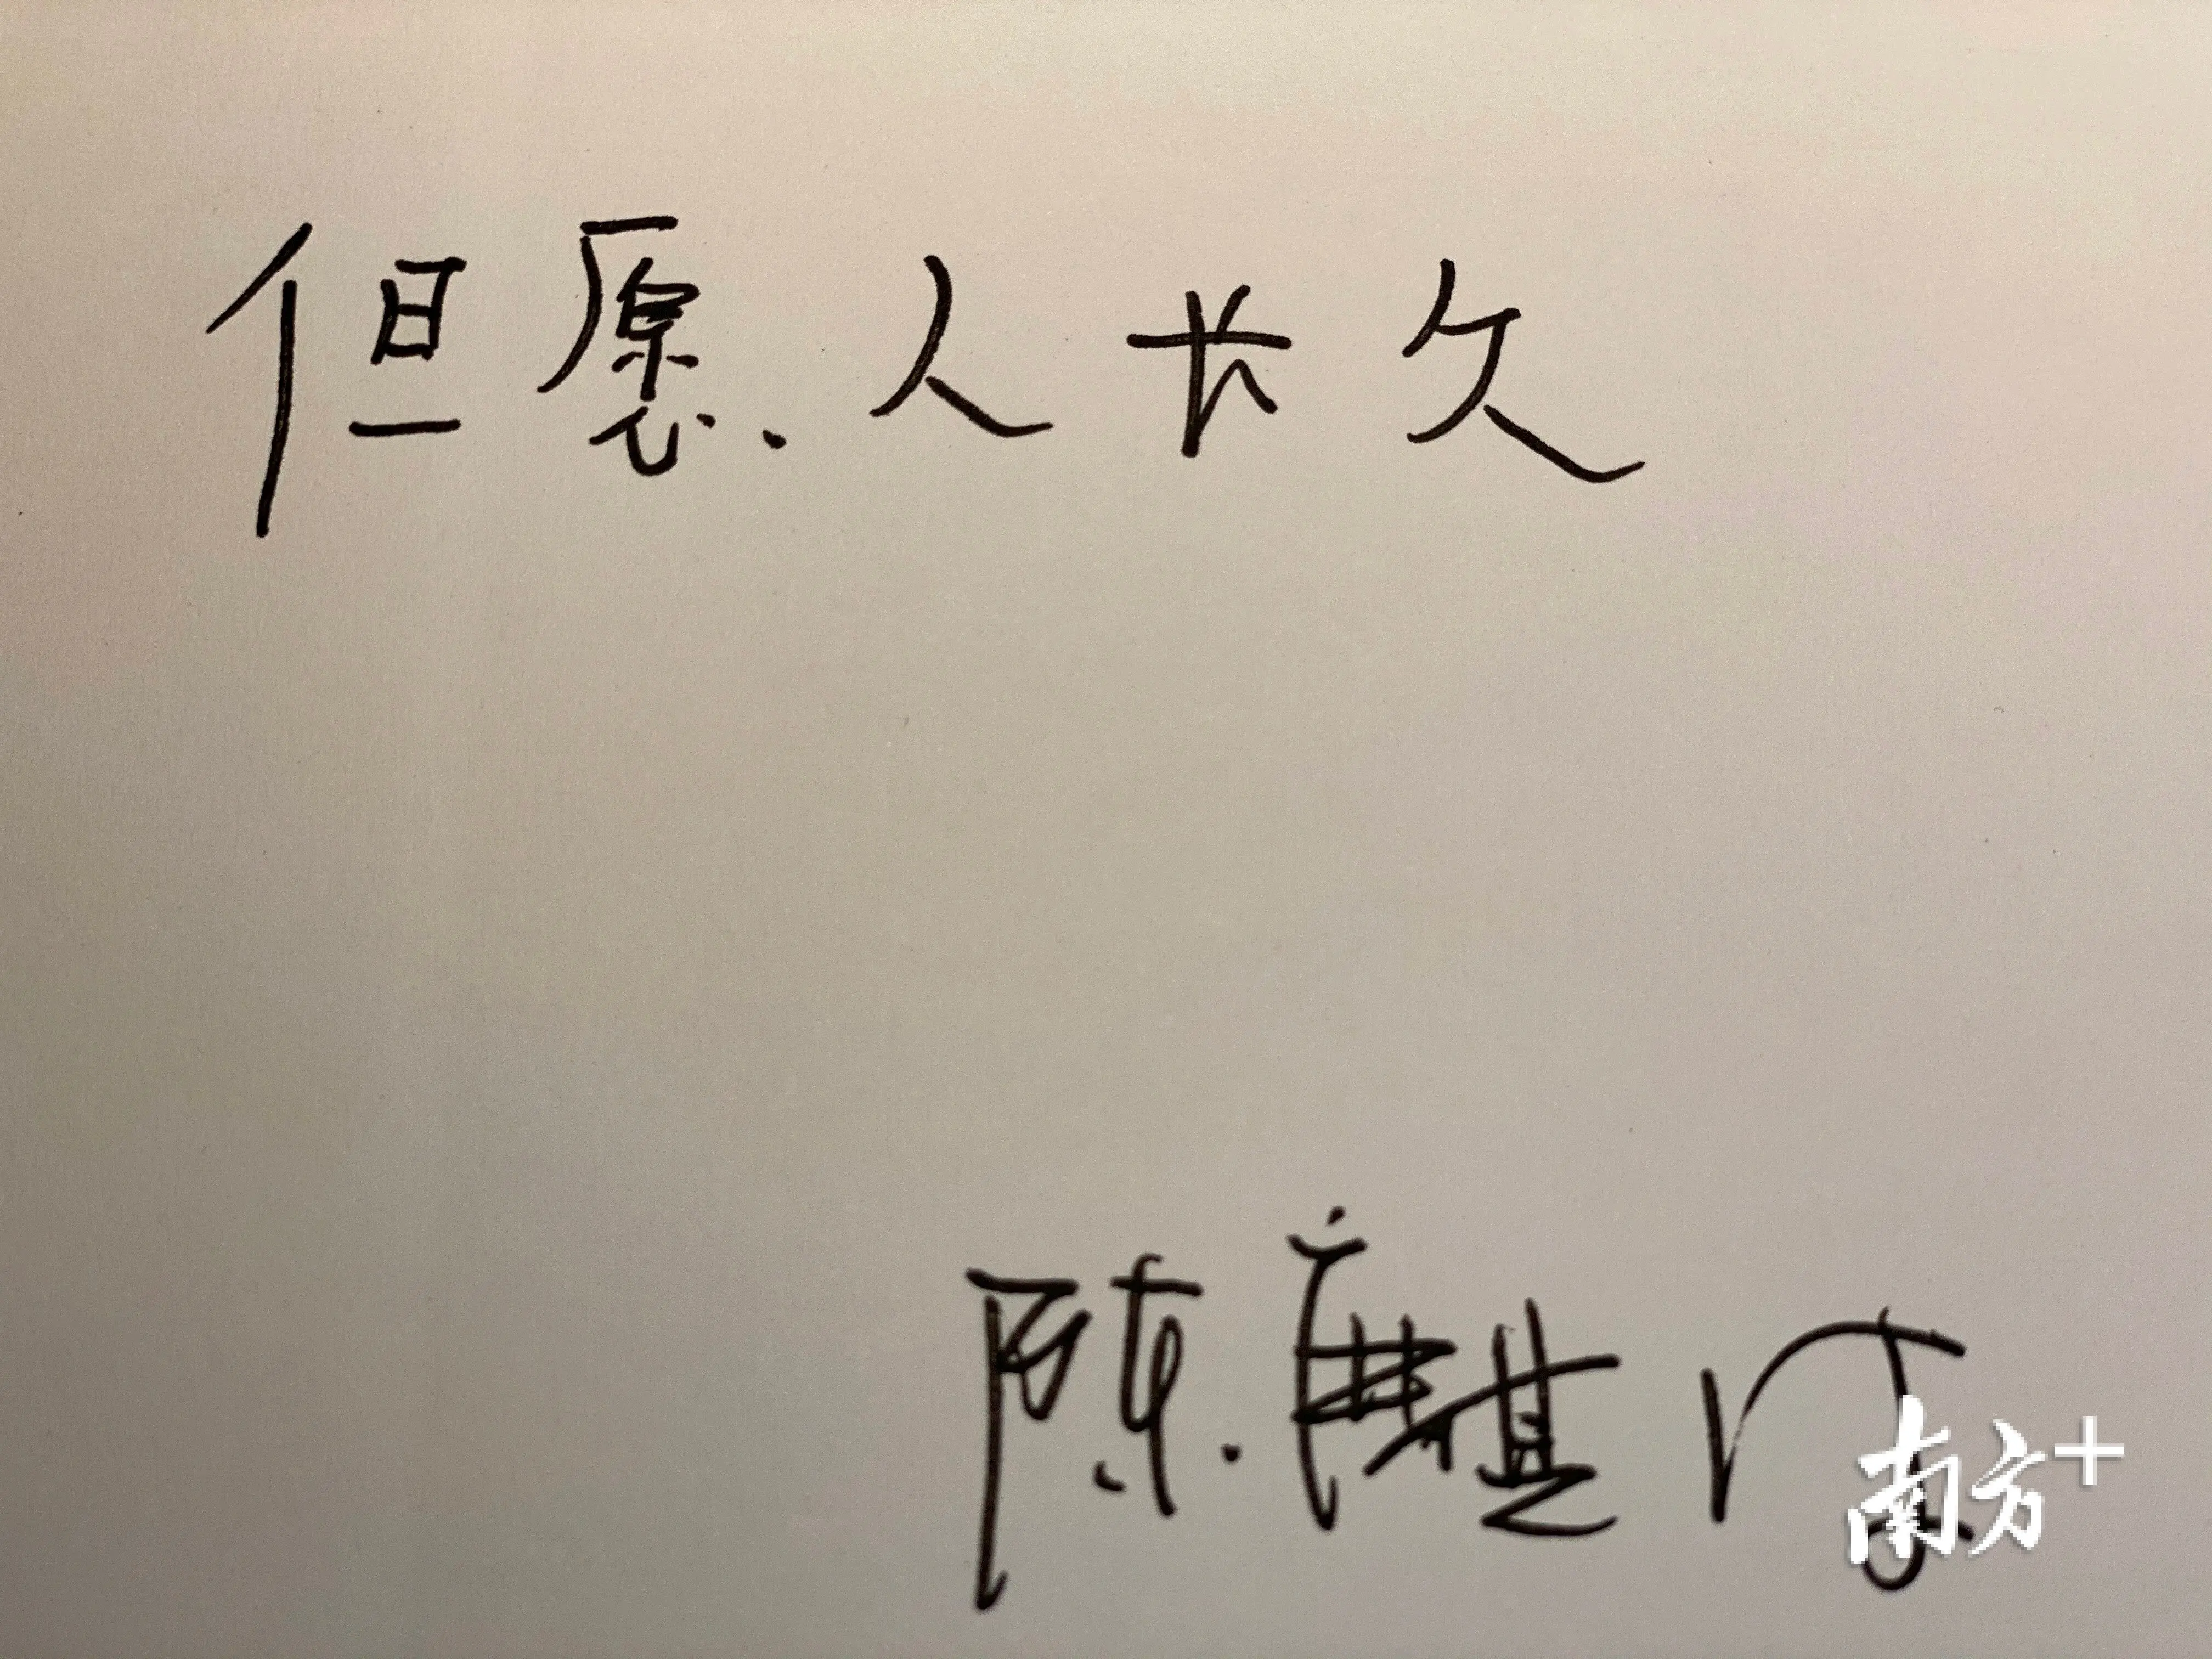 但愿人长久
陈麒
南方+